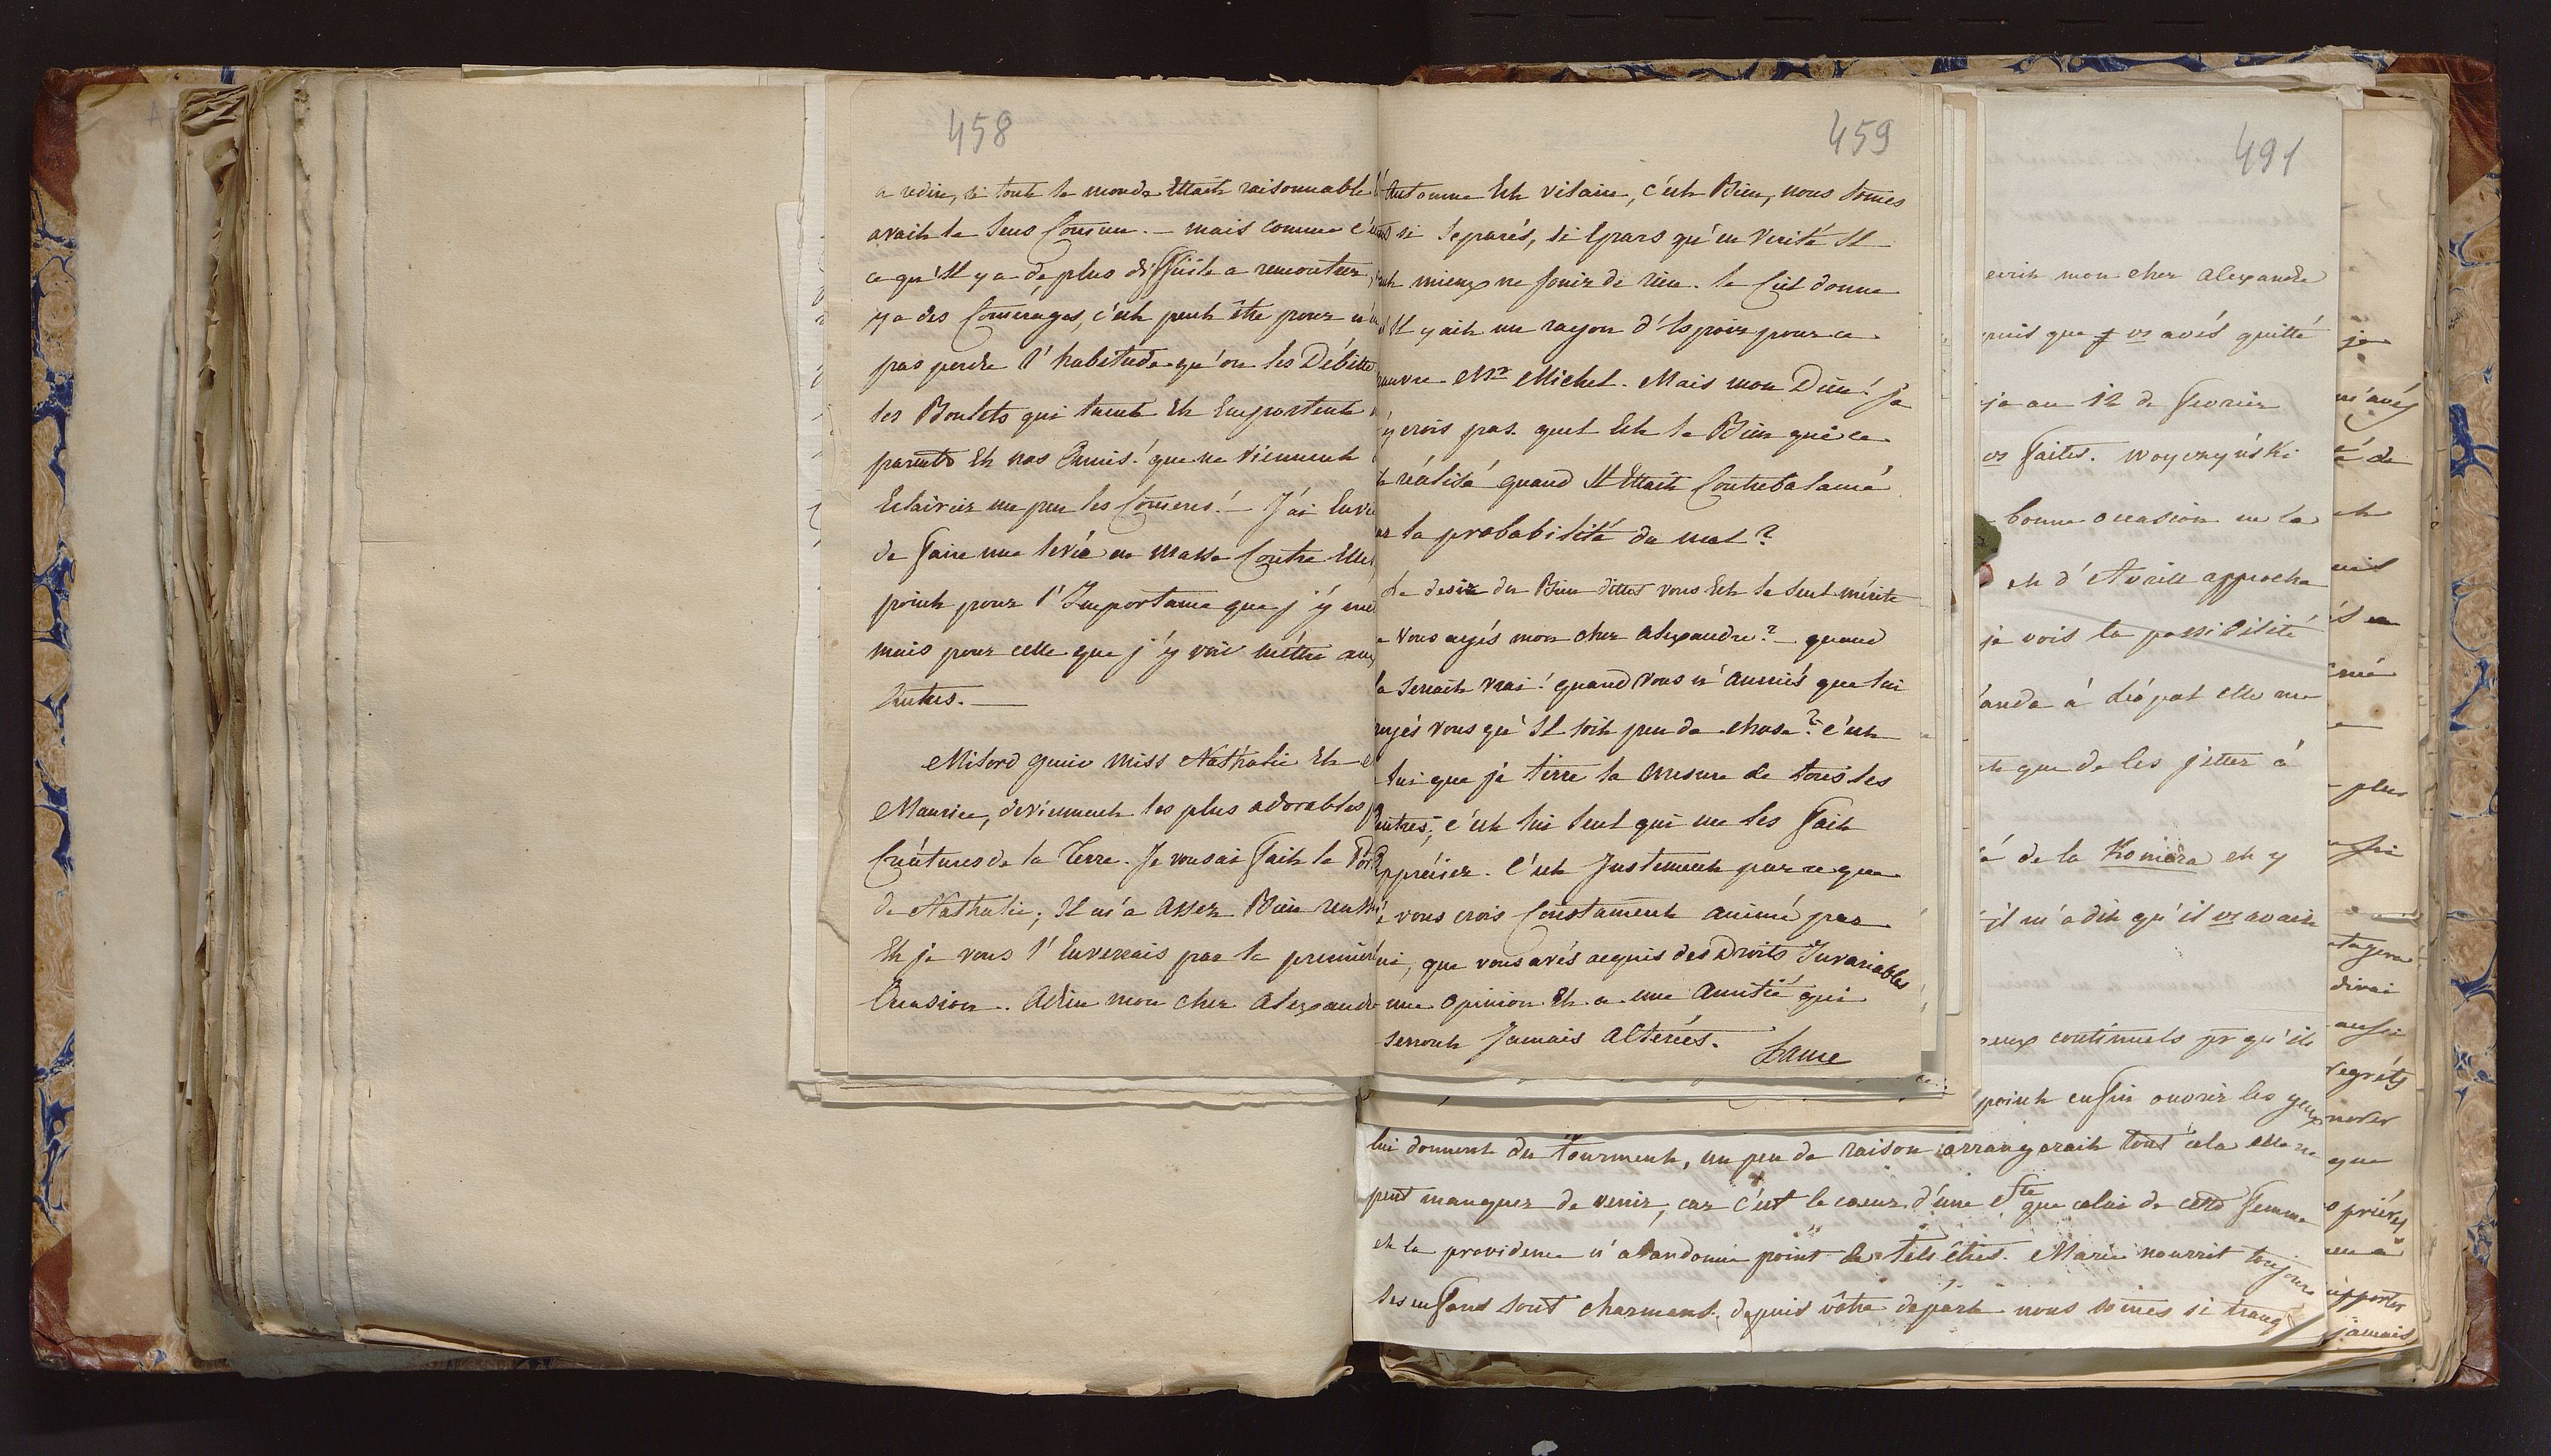 458
a redire, si tout le monde Ettait raisonnable
avait le sens Comun. – mais comme c'
ce qu'Il y a de plus difficile a rencontrer
y a des Comérages, c'est peut être pour n'en
pas perdre l'habitude qu'on les Débitte
les Boulets qui tuent Et Emportent
parents Et nos Amis! que ne viennent
Eclaircir un peu les Comeres! – J'ai Envie
de faire une levée en masse Contre Elles
point pour l'Importance que j'y
mais pour celle que j'y vois méttre aux
Autres. —
Milord quiv miss Nathalie Et
Maurice, deviennent les plus adorables
Créatures de la Terre. Je vous ai fait le
de Nathalie; Il m'a assez Bien
Et je vous l'Enverrais par la premiere
Occasion. Adieu mon cher Alexandre
459
Automne Est vilain, c'est Bien, nous somes
si séparés, si Epars qu'en vérité Il
mieux ne jouir de rien. le Ciel donne
Il y ait un rayon d'Espoir pour ce
pauvre Mr Michel. Mais mon Dieu! Je
y crois pas. quel Est le Bien que ce
réalisé quand Il Ettait Contrebalancé
la probabilité du mal?
Le desir du Bien dittes vous Est le seul mérite
vous ayés mon cher Alexandre? – quand
la serrait vrai! quand vous n'auriés que lui
vous qu'Il soit peu de chose? c'est
lui que je tirre la mesure de tous les
autres; c'est lui seul qui me les fait
Apprécier. C'est Justement parce que
vous crois Constament animé par
lui, que vous avés acquis des Droits Invariables
une opinion Et a une Amitié qui
serront Jamais altérées.
Laure
491
ecrit mon cher Alexandre
puis que vs avés quitté
au 12 de fevrier
vs faites. Woyczyński
bonne occasion
et d'Avrill approche
je vois la possibilité
à départ elle me
que de les jetter à
de la Komora et y
il m'a dit qu'il vs avait
continuels pr qu'ils
point enfin ouvrir les yeux
lui donnent du tourment, un peu de raison arrangerait tout cela elle ne
peut manquer de venir, car c'est le coeur d'une Ste que celui de cette femme
et la providence n'abandonne point de tels êtres. Marie nourrit toujours
ses enfans sont charmant. depuis vôtre départ nous somes si tranq
je
m'avés
de
plus
dirai
aussi
regréts
que
priéres
jamais